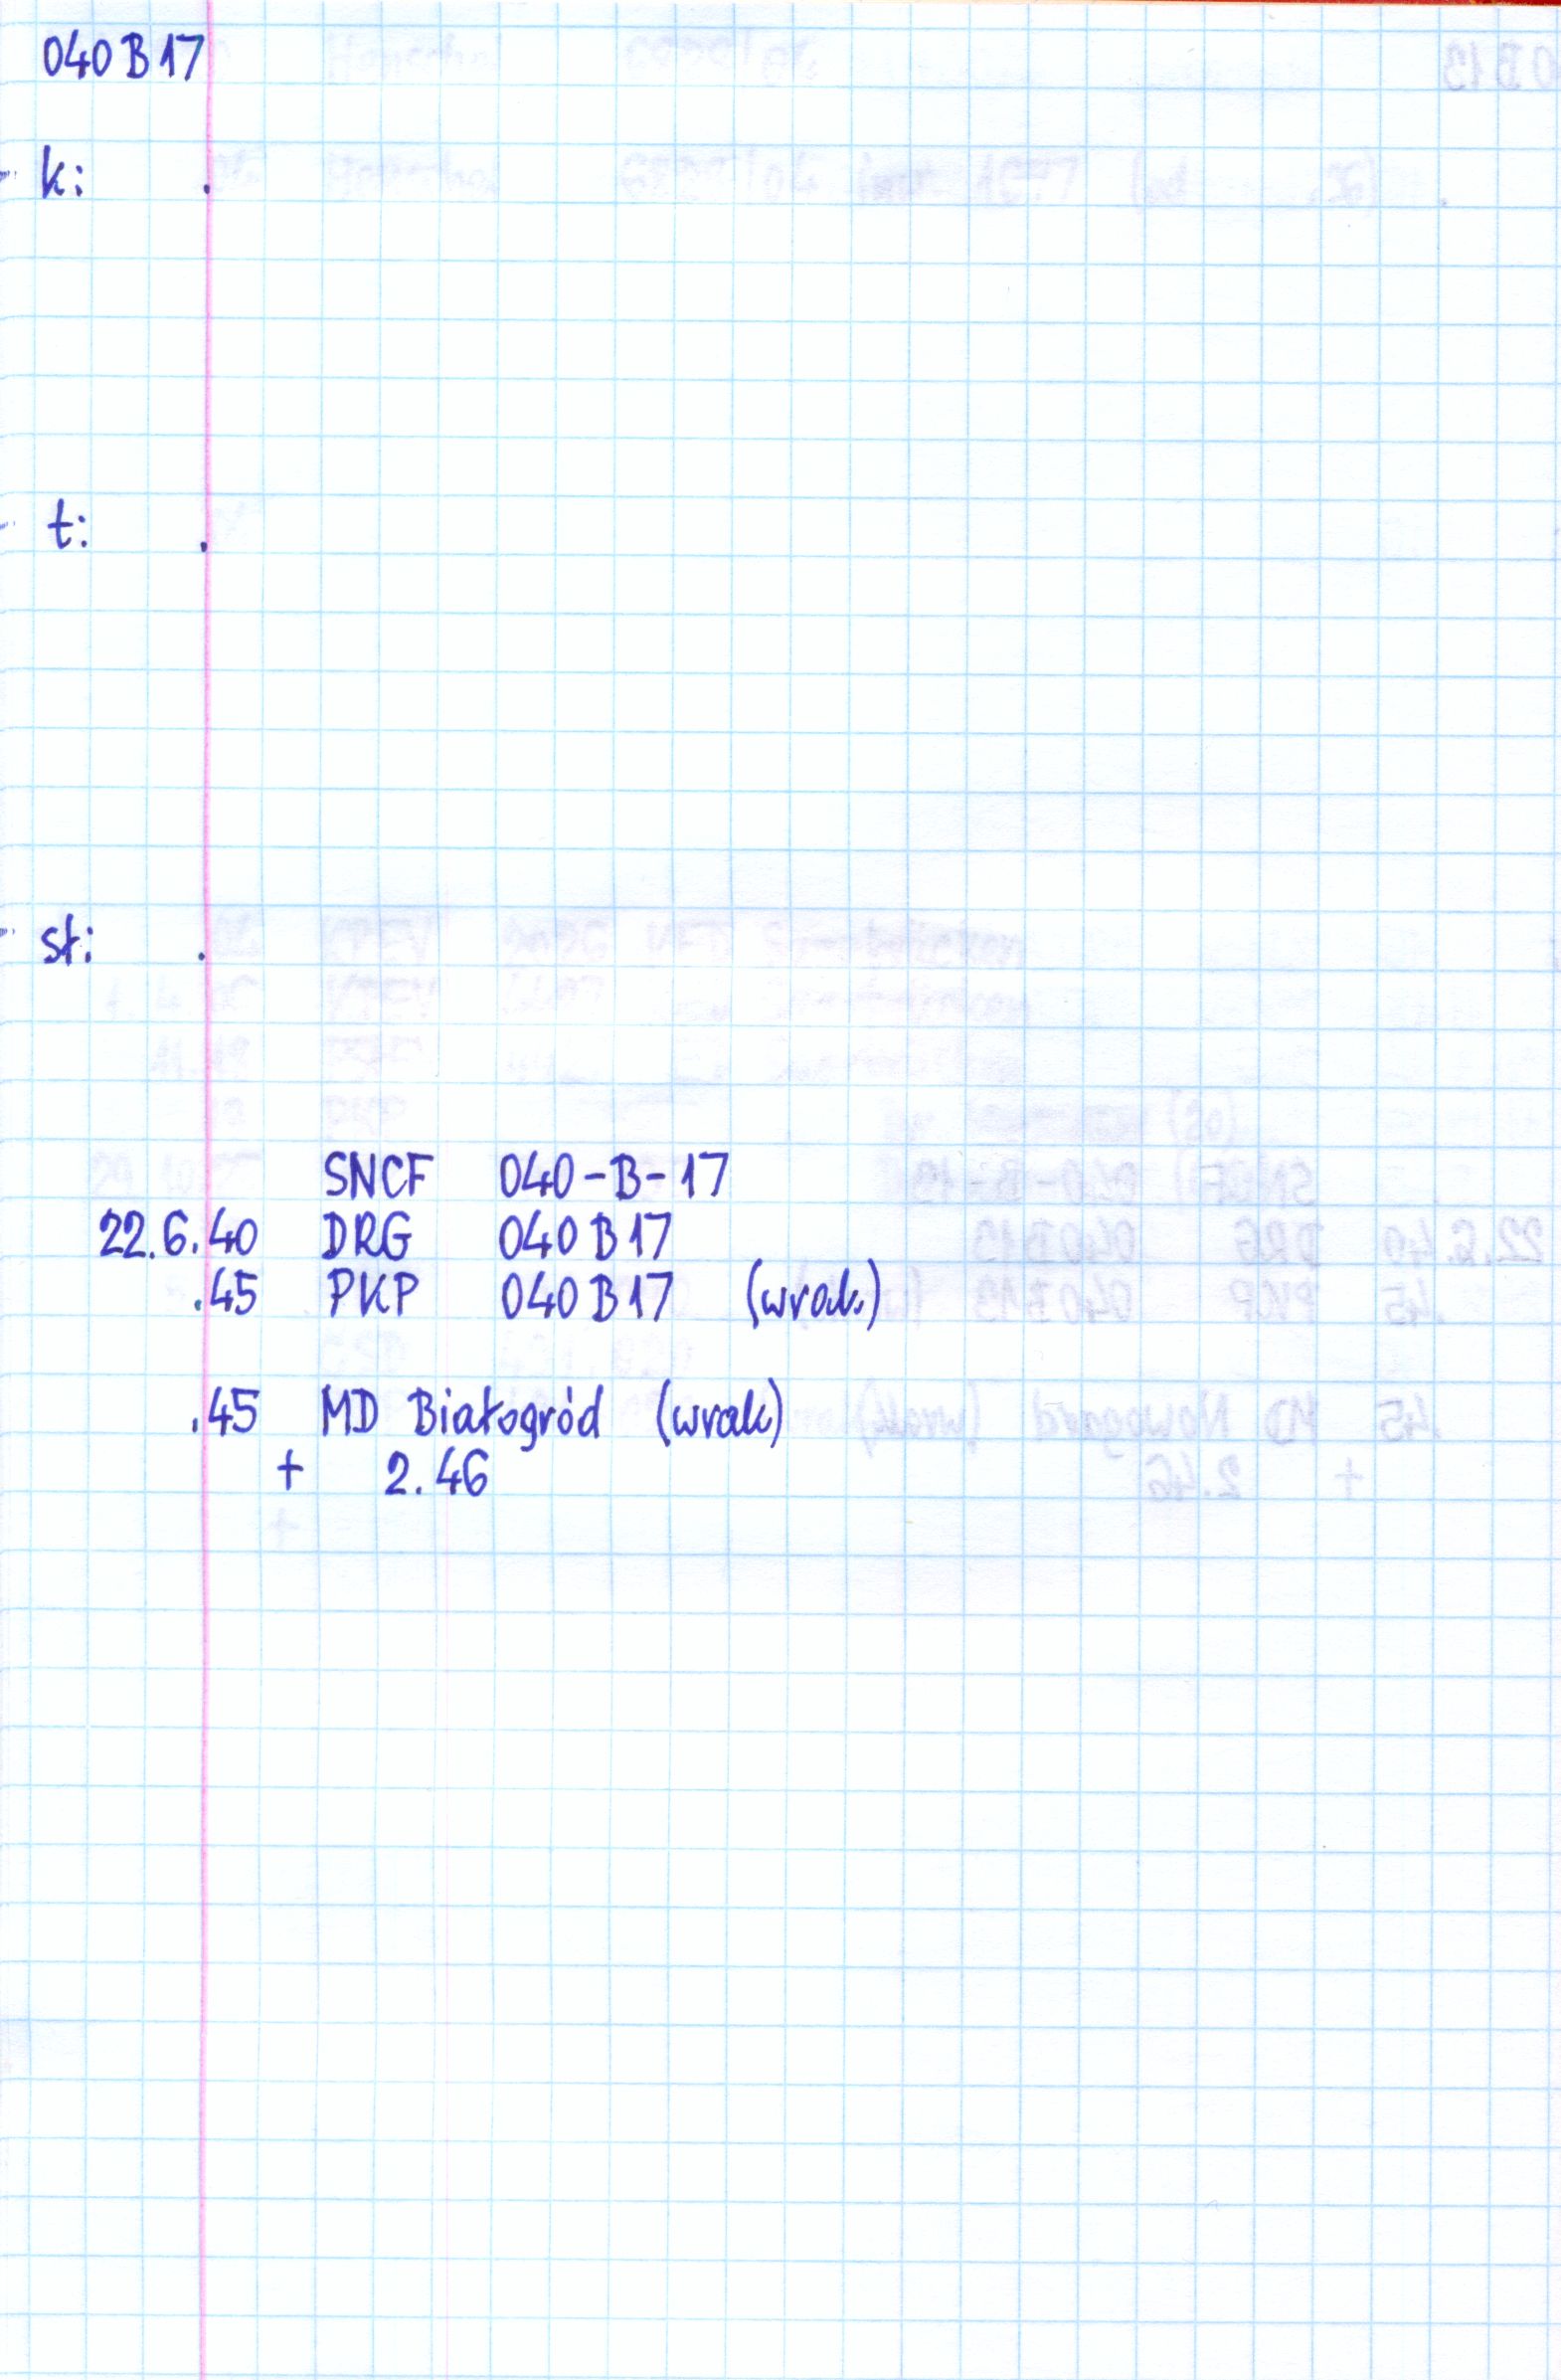 040 B 17
k: .
t: .
st: .
SNCF 040-B-17
22.6.40 DRG 040 B 17
.45 PKP 040 B 17 (wrak)
.45 MD Białogród (wrak)
+ 2.46